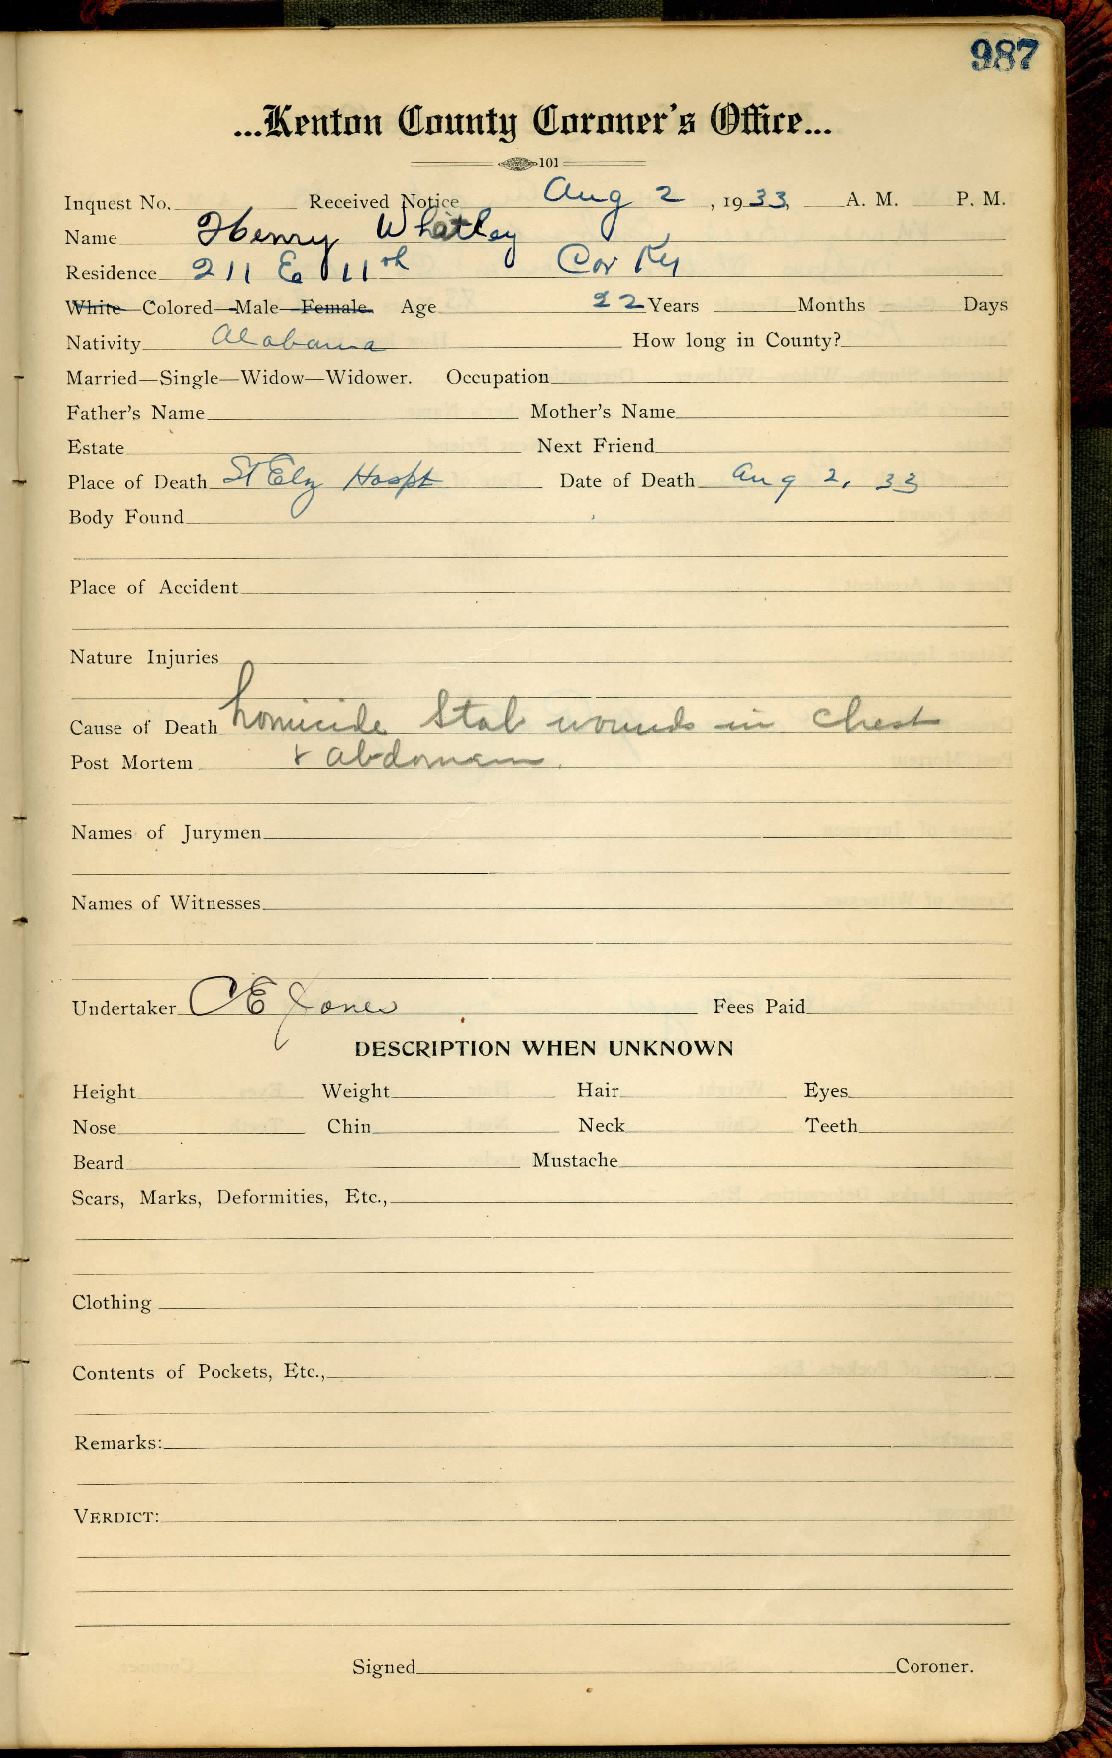 987
...Kenton County Coroner's Office...
101
Inquest No. Received Notice Aug 2, 1933, A. M. P. M.
Name Henry Whatley
Residence 211 E 11th Cov Ky
White—Colored—Male—Female. Age 22 Years Months Days
Nativity Alabama How long in County?
Married—Single—Widow—Widower. Occupation
Father's Name Mother's Name
Estate Next Friend
Place of Death St Elz Hospt Date of Death Aug 2, 33
Body Found
Place of Accident
Nature Injuries
Cause of Death homicide Stab wounds in chest
Post Mortem & abdomen.
Names of Jurymen
Names of Witnesses
Undertaker C E Jones Fees Paid
DESCRIPTION WHEN UNKNOWN
Height Weight Hair Eyes
Nose Chin Neck Teeth
Beard Mustache
Scars, Marks, Deformities, Etc.,
Clothing
Contents of Pockets, Etc.,
Remarks:
VERDICT:
Signed Coroner.